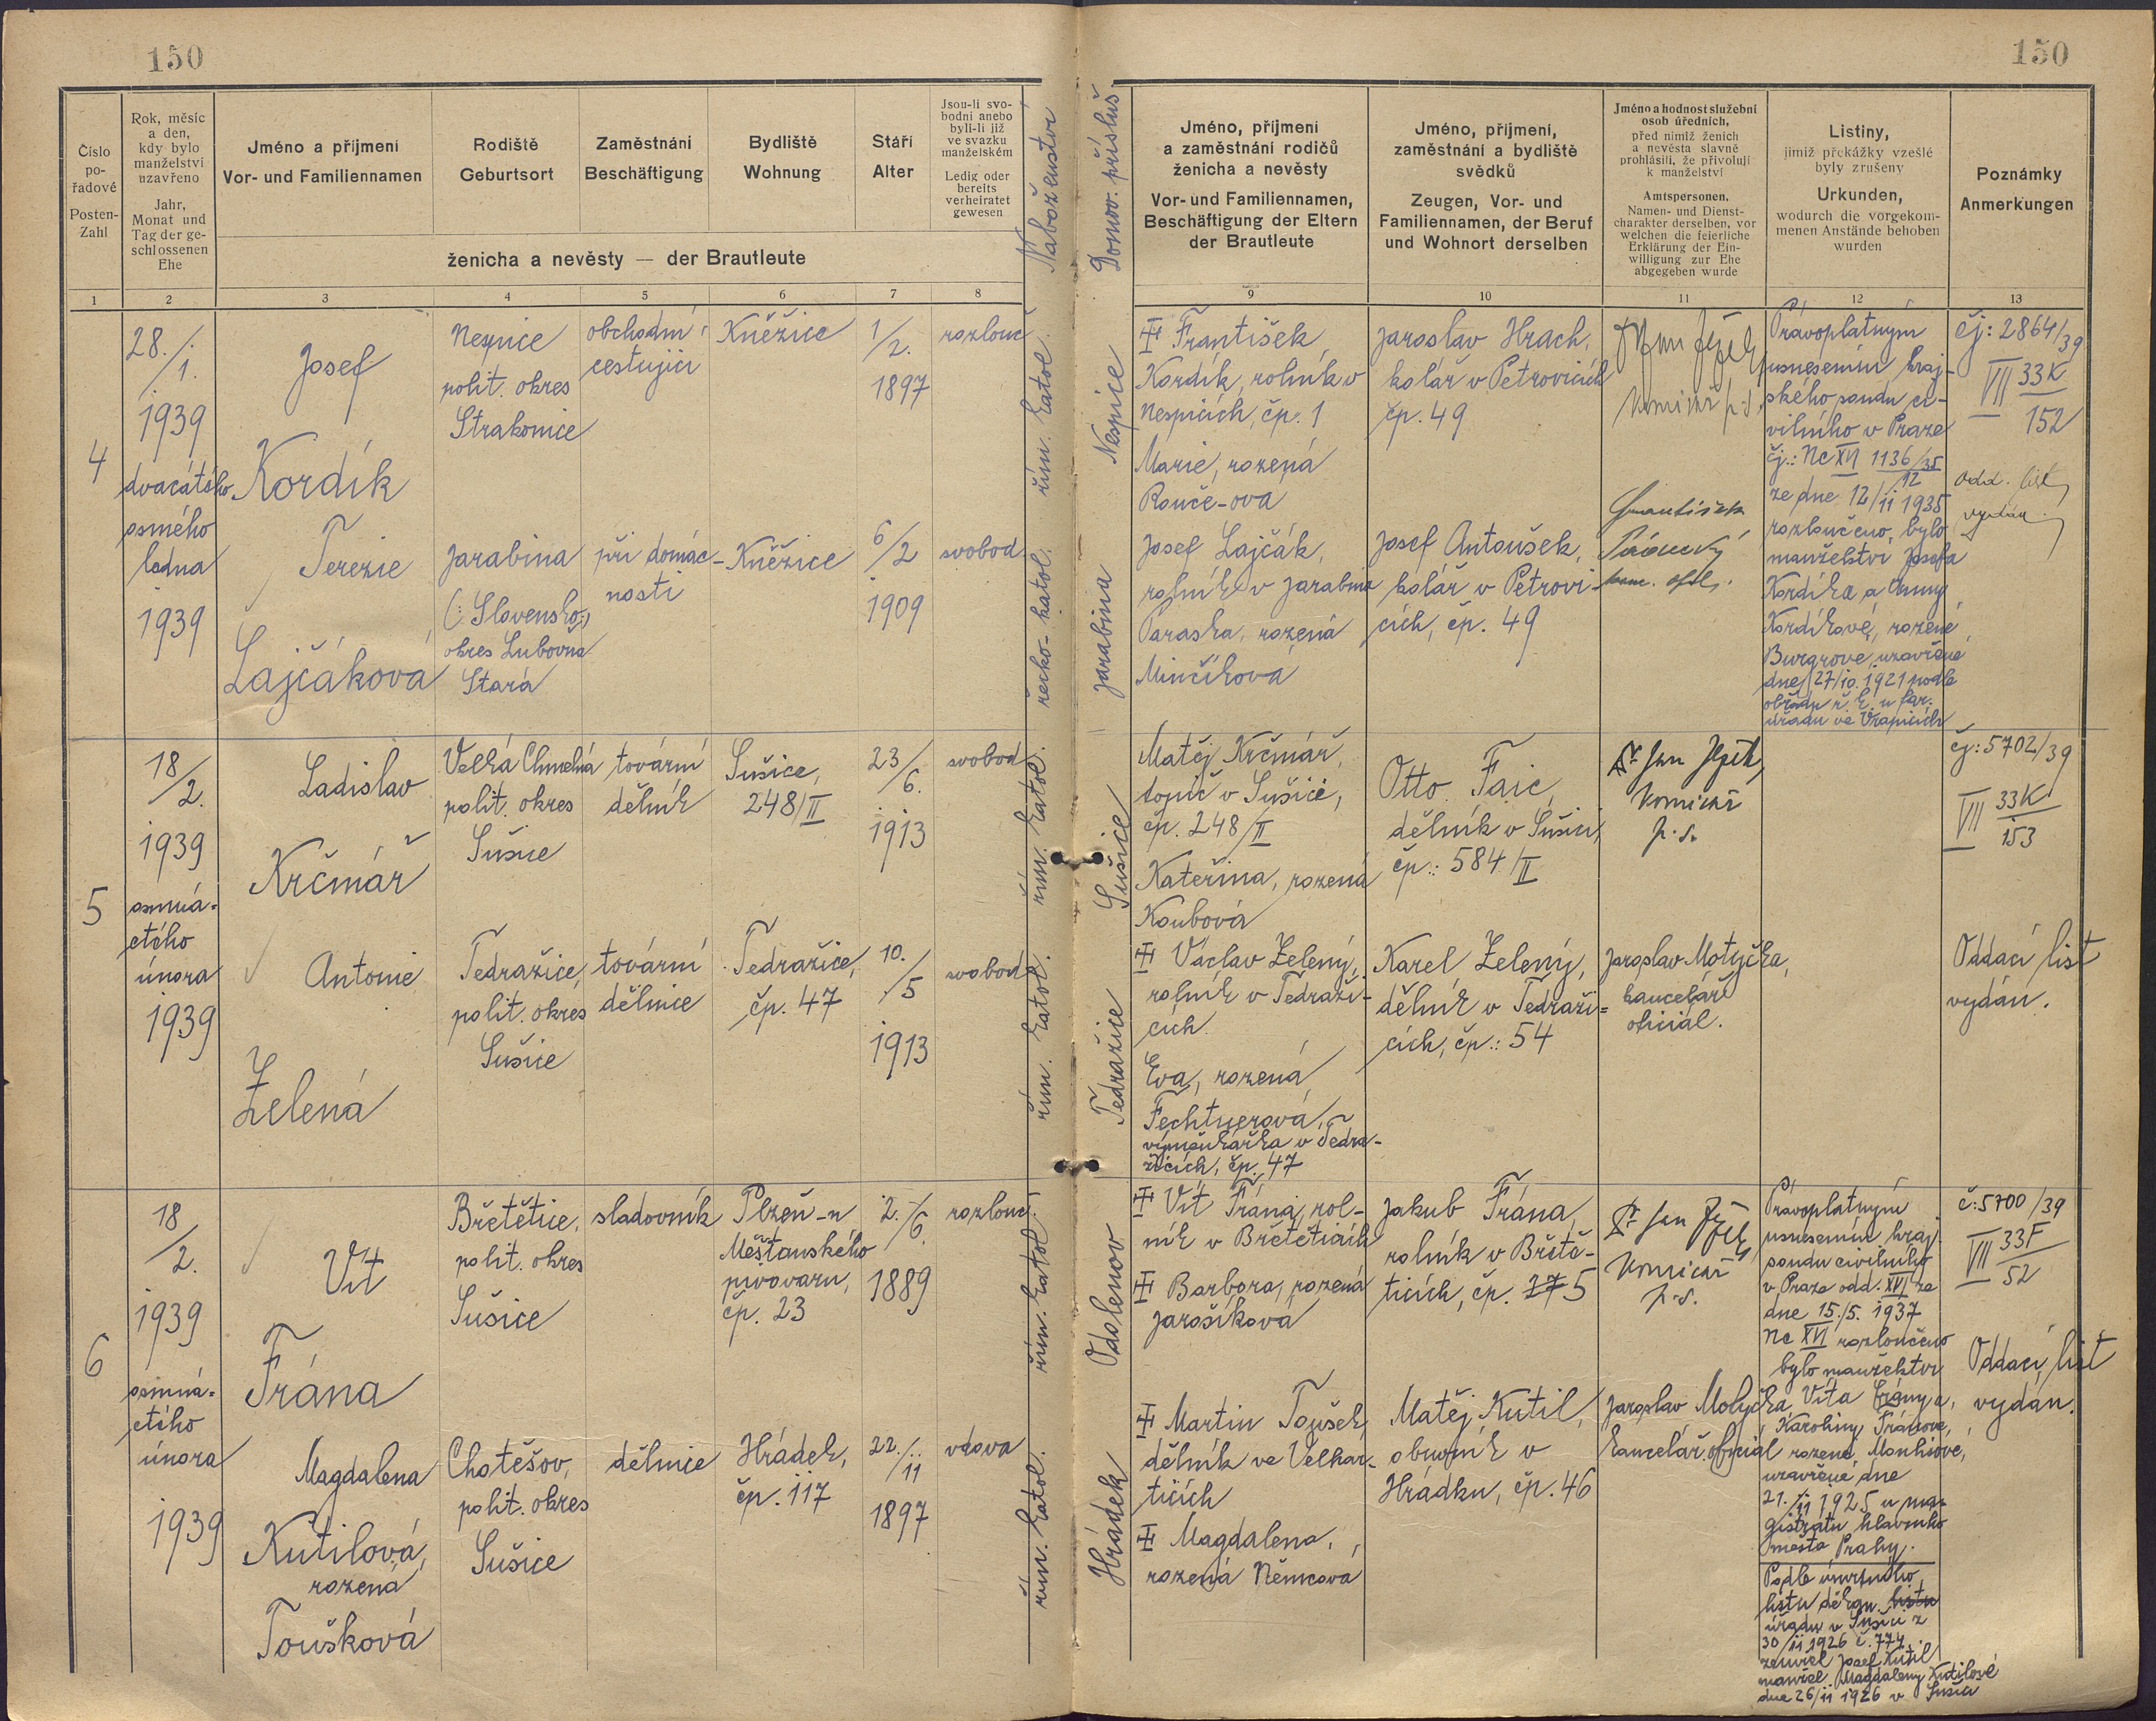 150
150
Číslo
po-
řadové
Posten-
Zahl
Rok, měsíc
a den,
kdy bylo
manželství
uzavřeno
Jahr,
Monat und
Tag der ge-
schlossenen
Ehe
Jméno a příjmení
Vor- und Familiennamen
Rodiště
Geburtsort
Zaměstnání
Beschäftigung
Bydliště
Wohnung
Stáří
Alter
Jsou-li svo-
bodni anebo
byli-li již
ve svazku
manželském
Ledig oder
bereits
verheiratet
gewesen
ženicha a nevěsty — der Brautleute
Náboženství
Domov. přísluš
Jméno, příjmení
a zaměstnání rodičů
ženicha a nevěsty
Vor- und Familiennamen,
Beschäftigung der Eltern
der Brautleute
Jméno, příjmení,
zaměstnání a bydliště
svědků
Zeugen, Vor- und
Familiennamen, der Beruf
und Wohnort derselben
Jméno a hodnost služební
osob úředních,
před nimiž ženich
a nevěsta slavně
prohlásili, že přivolují
k manželství
Amtspersonen,
Namen- und Dienst-
charakter derselben, vor
welchen die feierliche
Erklärung der Ein-
willigung zur Ehe
abgegeben wurde
Listiny,
jimiž překážky vzešlé
byly zrušeny
Urkunden,
wodurch die vorgekom-
menen Anstände behoben
wurden
Poznámky
Anmerkungen
1 2 3 4 5 6 7 8 9 10 11 12 13
4
28./1.
1939
dvacátého
osmého
ledna
1939
Josef
Kordík
Nespice
polit. okres
Strakonice
obchodní
cestující
Kněžice
1/2.
1897
rozlouc
řím. katol.
Nespice
Terezie
Lajčáková
Jarabina
(: Slovensko:)
okres Lubovňa
Stará
při domác-
nosti
Kněžice
6/2
1909
svobod
řecko-katol.
Jarabina
František
Kordík, rolník v
Nespicích, čp. 1
Marie, rozená
Rouče-ova
Josef Lajčák,
rolník v Jarabina
Paraska, rozená
Minčíkova
Jaroslav Hrach,
kolář v Petrovicích
čp. 49
Josef Antoušek,
kolář v Petrovi-
cích, čp. 49
komisař p.s.
František
Pravoplatným
usnesením kraj-
ského soudu ci-
vilního v Praze
čj.: Nc XVI 1136/35
12
ze dne 12/11 1935
rozloučeno bylo
manželství Josefa
Kordíka a Anny
Kordíkové, rozené
Burgrove, uzavřené
dne 27/10. 1921 podle
obřadu ř. k. u far.
úřadu ve Vrapicích
čj: 2864/39
VII 33K
152
Odd. list
vydán.
5
18/2.
1939
osmná-
ctého
února
1939
Ladislav
Krčmář
Velká Chmelná
polit. okres
Sušice
tovární
dělník
Sušice,
248/II
23/6.
1913
svobod
řím. katol.
Sušice
Antonie
Zelená
Tedražice,
polit. okres
Sušice
tovární
dělnice
Tedražice,
čp. 47
10./5
1913
svobod
řím. katol.
Tedražice
Matěj Krčmář,
topič v Sušici,
čp. 248/II
Kateřina, rozená
Koubová
Václav Zelený,
rolník v Tedraži-
cích.
Eva, rozená
Fechtnerová,
výměnkářka v Tedra-
žicích, čp. 47
Otto Faic,
dělník v Sušici,
čp.: 584/II
Karel Zelený,
dělník v Tedraži=
cích, čp.: 54
Dr Jan Ježek,
komisař
p.s.
Jaroslav Motyčka,
kancelář.
oficiál.
čj: 5702/39
VII 33K
153
Oddací list
vydán.
6
18/2.
1939
osmná-
ctého
února
1939
Vít
Frána
Břetětice,
polit. okres
Sušice
sladovník
Plzeň-u
Měšťanského
pivovaru,
čp. 23
2./6.
1889
rozlouc
řím. katol.
Odolenov
Magdalena
Kutilová,
rozená
Toušková
Chotěšov,
polit. okres
Sušice
dělnice
Hrádek,
čp. 117
22./11
1897
vdova
řím. katol.
Hrádek
Vít Frána, rol-
ník v Břetěticích
Barbora, rozená
Jarošíkova
Martin Toušek,
dělník ve Velhar-
ticích
Magdalena,
rozená Němcová
Jakub Frána,
rolník v Břetě-
ticích, čp. 5
Matěj Kutil,
obuvník v
Hrádku, čp. 46
Dr Jan Ježek
komisař
p.s.
Jaroslav Motyčka
kancelář. oficiál
Pravoplatným
usnesením kraj.
soudu civilního
v Praze odd. XVI ze
dne 15./5. 1937
Nc XVI rozloučeno
bylo manželství
Víta Frány a
Karoliny Fránové,
rozené Monhiové,
uzavřené dne
21./11 1925 u ma-
gistrátu hlavního
města Prahy.
Podle úmrtního
listu děkan. listu
úřadu v Sušici z
30/11 1926 č. 774.
zemřel Josef Kutil
manžel Magdaleny Kutilové
dne 26/11 1926 v Sušici
č: 5700/39
VII 33F
52
Oddací list
vydán.